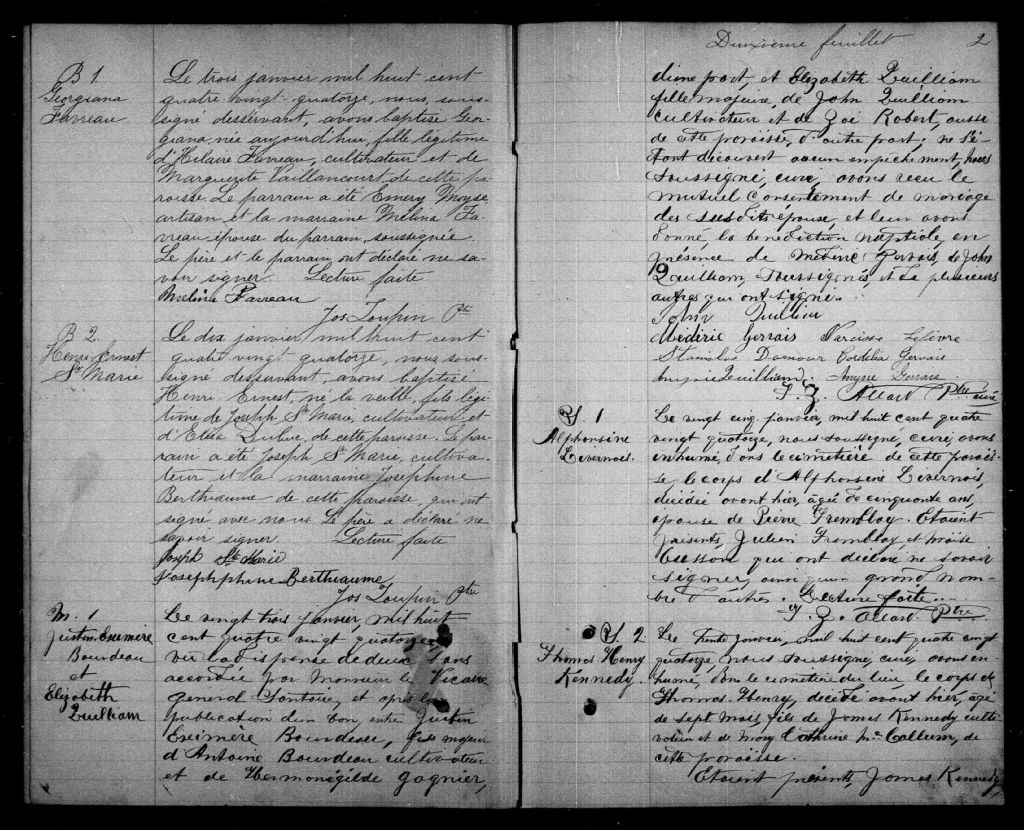 B 1.
Georgiana
Favreau
Le trois janvier mil huit cent
quatre vingt-quatorze, nous, sous-
signé desservant, avons baptisé Geor-
giana, née aujourd'hui, fille légitime
d'Hilaire Favreau, cultivateur et de
Marguerite Vaillancourt, de cette pa-
roisse. Le parrain a été Emery Moyse,
artisan, et la marraine Mélina Fa-
vreau épouse du parrain, soussignée.
Le père et le parrain, ont déclaré ne sa-
voir signer. Lecture faite
Melina Favreau
Jos Toupin Ptre
B 2.
Henri-Ernest
Ste Marie
Le dix janvier mil huit cent
quatre vingt quatorze, nous sous-
signé desservant, avons baptisé
Henri Ernest, né la veille, fils légi-
time de Joseph Ste Marie, cultivateur, et
d'Eliza Dubuc, de cette paroisse. Le par-
rain a été Joseph Ste Marie, cultiva-
teur et la marraine Josephine
Berthiaume de cette paroisse, qui ont
signé avec nous. Le père a déclaré ne
savoir signer. Lecture faite
Joseph Ste Marie
Josephphine Berthiaume
Jos Toupin Ptre
M. 1
Justin Exzimère
Bourdeau
et
Elizabeth
Quilliam
Le vingt trois janvier, mil huit
cent quatre vingt quatorze,
vu la dispense de deux bans
accordée par Monsieur le Vicaire
general et après la
publication d'un ban, entre Justin
Exzimère Bourdeau, fils majeur
d'Antoine Bourdeau cultivateur
et de Hermonégilde Gagnier,
Deuxième feuillet 2
d'une part, et Elizabeth Quilliam
fille majeure, de John Quilliam
cultivateur et de Zoé Robert, aussi
de cette paroisse, d'autre part; ne s'é-
tant découvert aucun empêchement, nous
soussigné, curé, avons reçu le
mutuel consentement de mariage
des susdits épouse, et leur avons
donné, la bénédiction nuptiale, en
présence de Médéric Gervais, de John
Quilliam, soussignés, et de plusieurs
autres qui ont signé.
John Quilliam
Médéric Gervais Narcisse Lefèvre
Stanislas Damour Cordélia Gervais
Quilliam. Gervais
J. Z. Allard Ptre curé
S. 1
Alphonsine
Livernois.
Le vingt cinq janvier, mil huit cent quatre
vingt quatorze, nous soussigné, curé, avons
inhumé, dans le cimetière de cette parois-
se le corps d'Alphonsine Livernois,
décédée avant hier, âgée de cinquante ans,
épouse de Pierre Tremblay. Etaient
présents, Julien Tremblay et
Cusson qui ont déclaré ne savoir
signer, ainsi qu'un grand nom-
bre d'autres. Lecture faite.
J. Z. Allard Ptre
S. 2.
Thomas Henry
Kennedy.
Le trente janvier, mil huit cent quatre vingt
quatorze, nous soussigné, curé, avons in-
humé, dans le cimetière du lieu le corps de
Thomas Henry, décédé avant hier, âgé
de sept mois, fils de James Kennedy culti-
vateur et de Mary Cathrine Mc Callum, de
cette paroisse.
Etaient présents, James Kennedy,